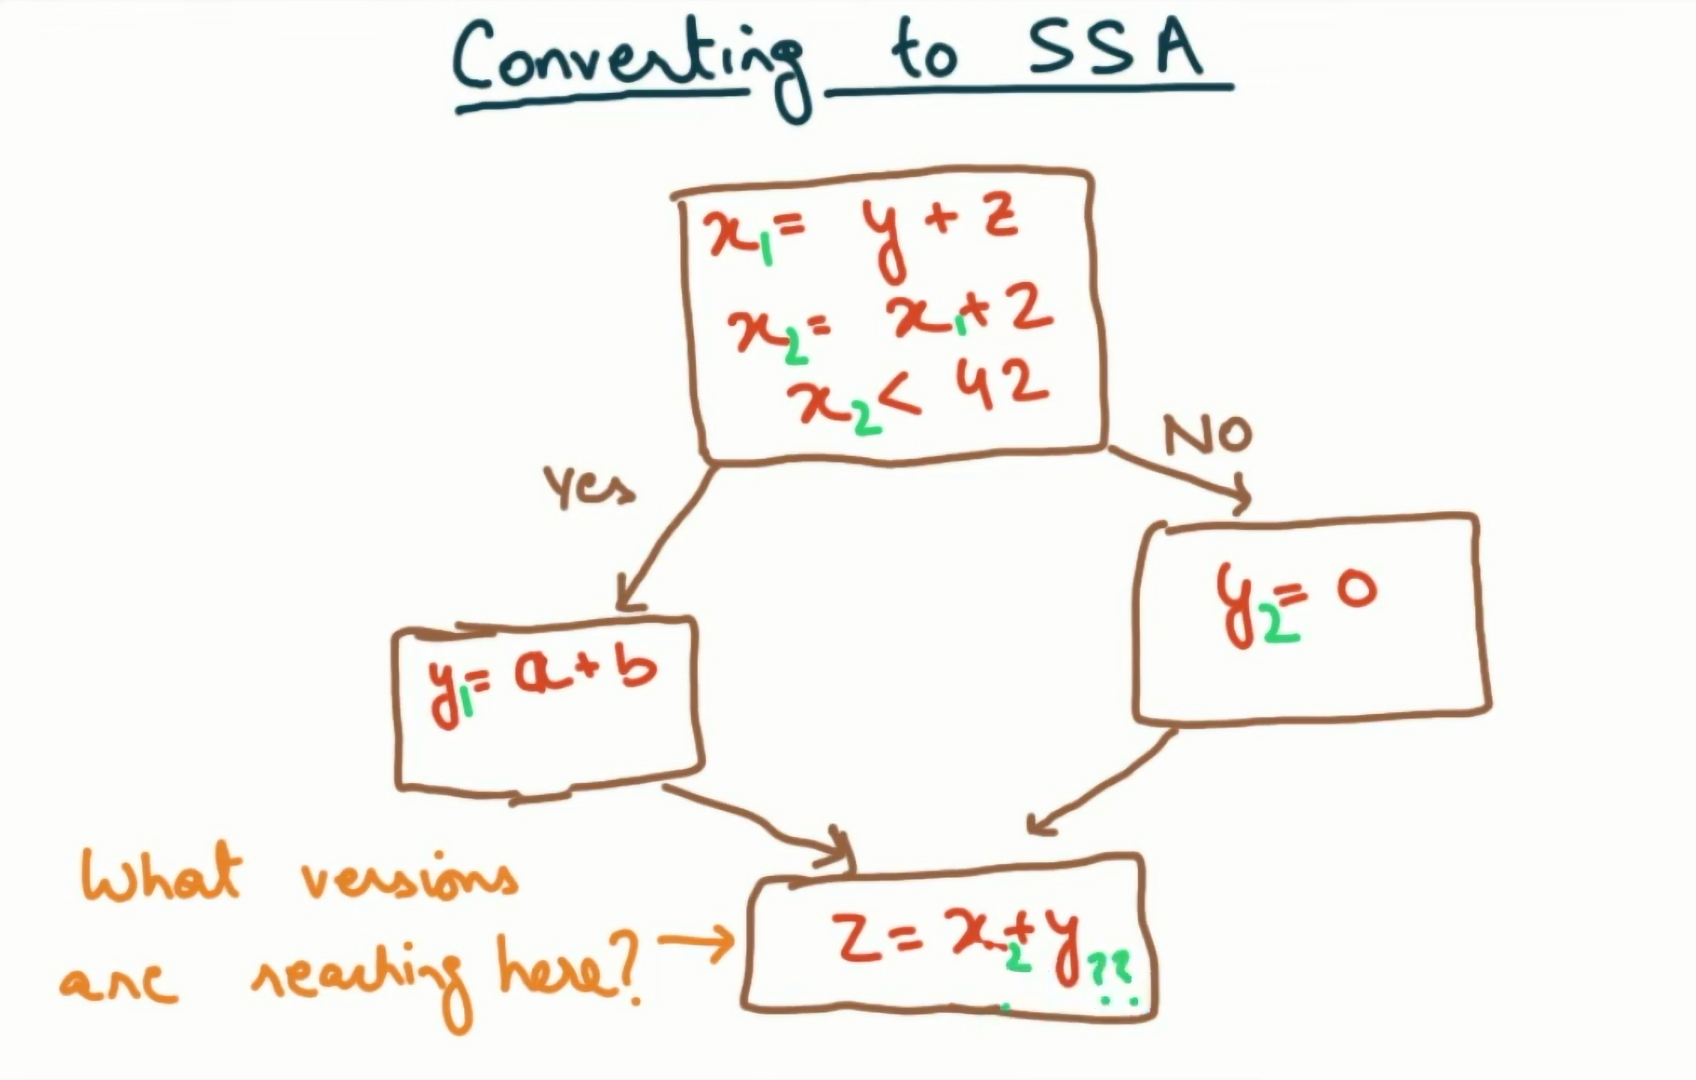 Converting to SSA
x₁ = y + z
x₂ = x₁ + 2
x₂ < 42
Yes
NO
y₁ = a + b
y₂ = 0
What versions
are reaching here? →
z = x₂ + y??